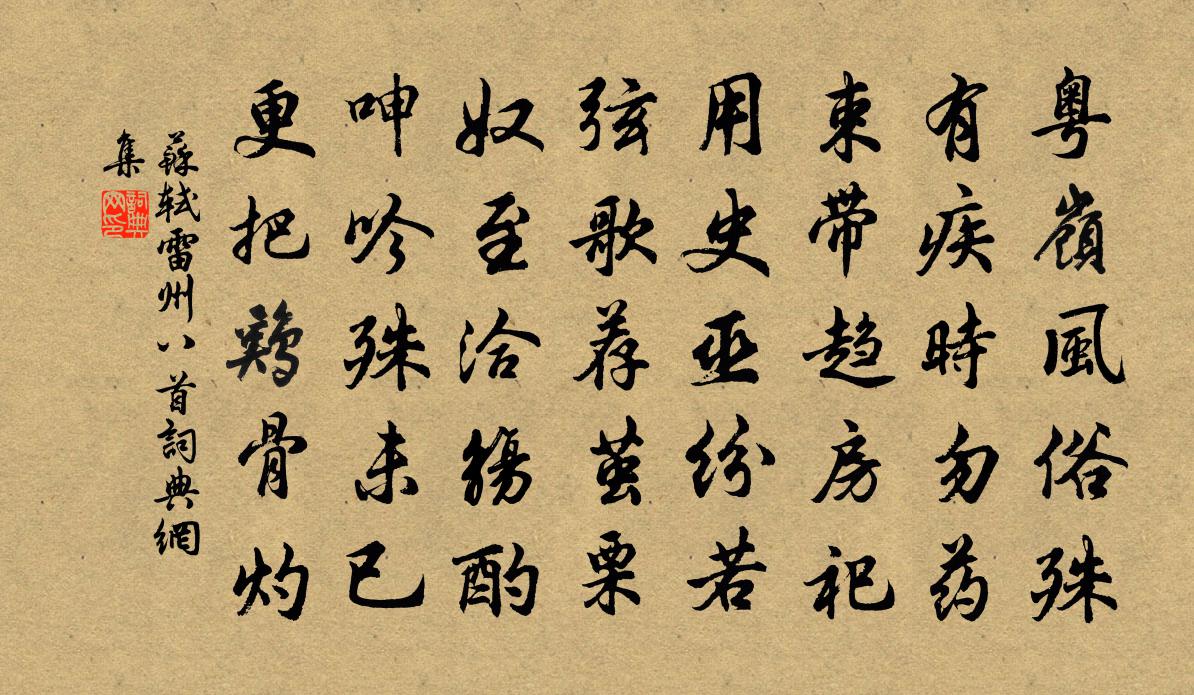 粤嶺風俗殊
有疾時勿药
束带趋房祀
用史巫纷若
弦歌荐茧栗
奴至洽觴酌
呻吟殊未已
更把鷄骨灼
蘇轼雷州八首詞典網
集
詞典
网印